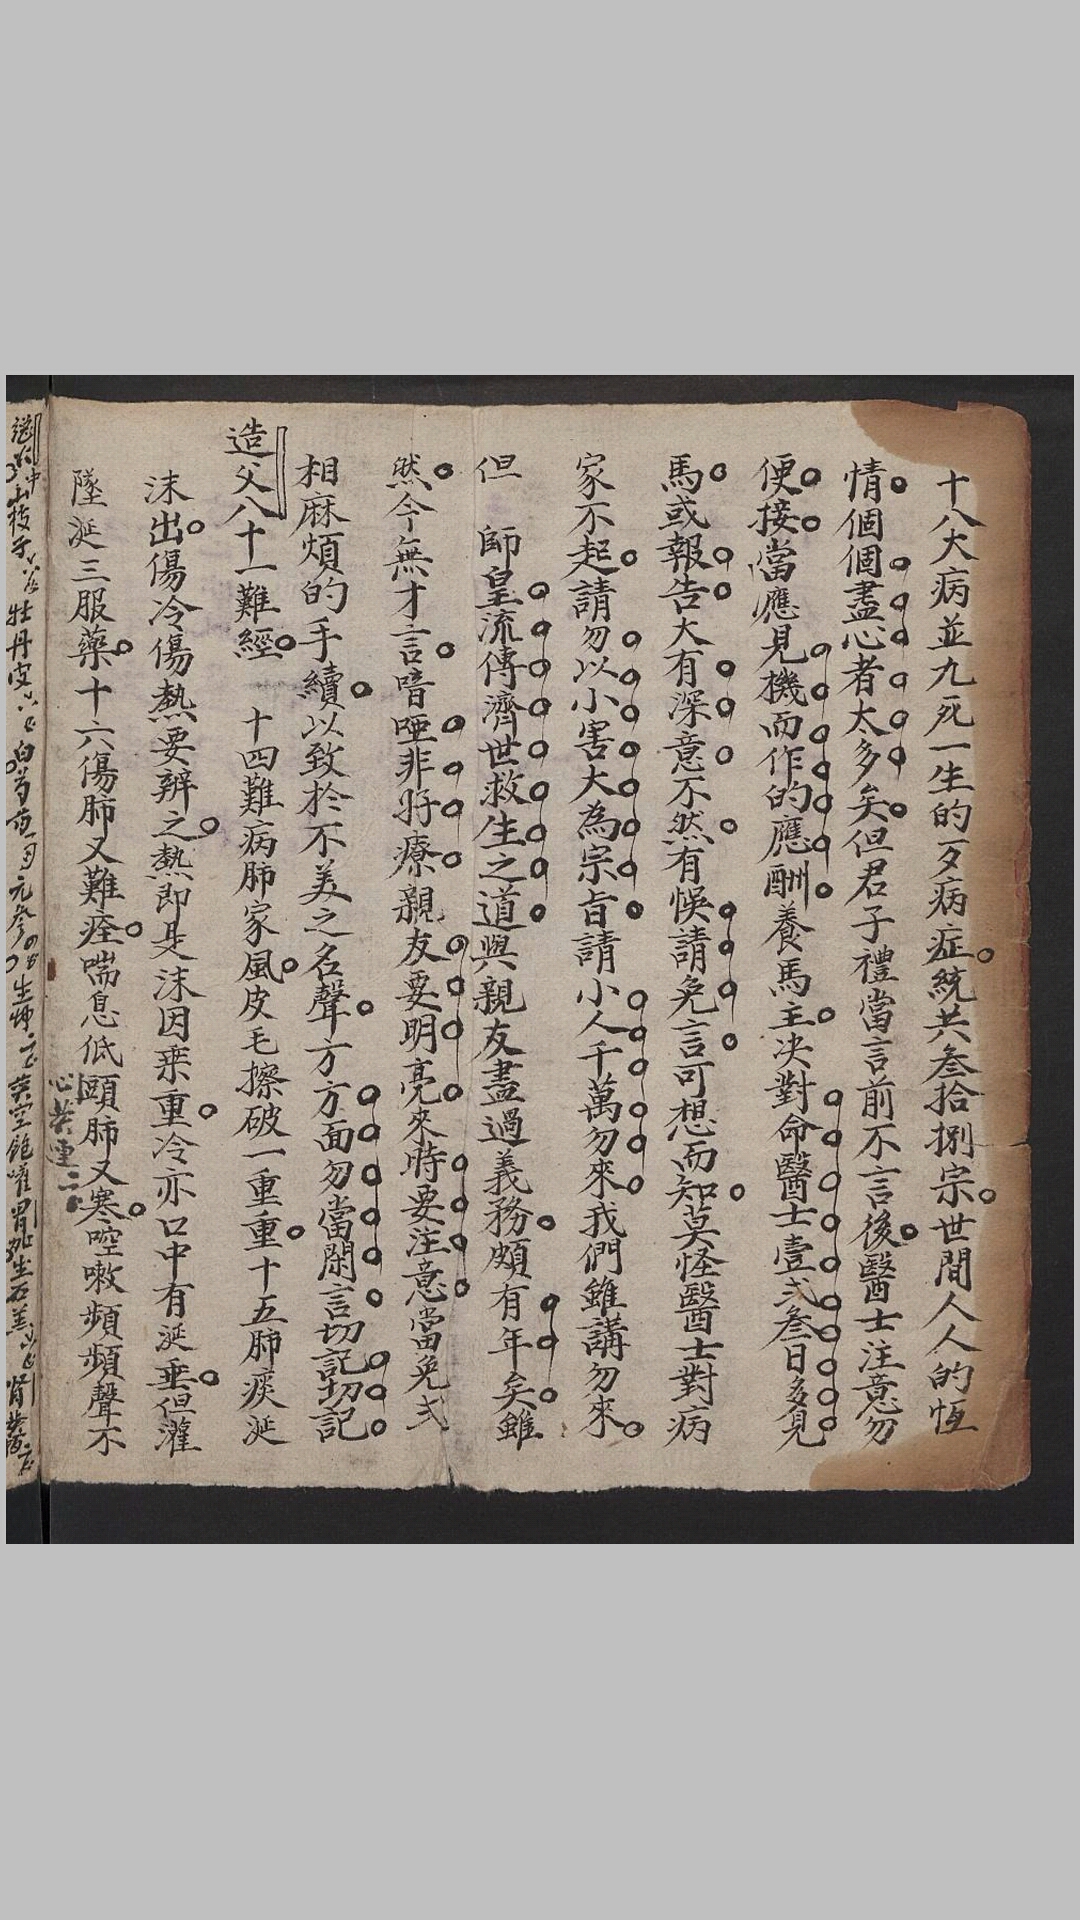 十八大病並九死一生的歹病症統共叁拾捌宗世間人人的恆
情個個盡心者太多矣但君子禮當言前不言後醫士注意勿
便接當應見機而作的應酬養馬主决對命醫士壹弍叁日多見
馬或報告大有深意不然有悞請免言可想而知莫怪醫士對病
家不起請勿以小害大為宗旨請小人千萬勿來我們雖講勿來
但 師皇流傳濟世救生之道與親友盡過義務頗有年矣雖
然今無才言喑啞非好療親友要明亮來時要注意當免弍
相麻煩的手續以致於不美之名聲方方面勿當閑言切記切記
造父八十一難經 十四難病肺家風皮毛擦破一重重十五肺痰涎
沫出傷冷傷熱要辨之熱即是沫因乘重冷亦口中有涎垂但灌
墜涎三服藥十六傷肺又難痊喘息低頤肺又寒啌嗽頻頻聲不
心黃連二
山枝子 牡丹皮 白芍 元參 生